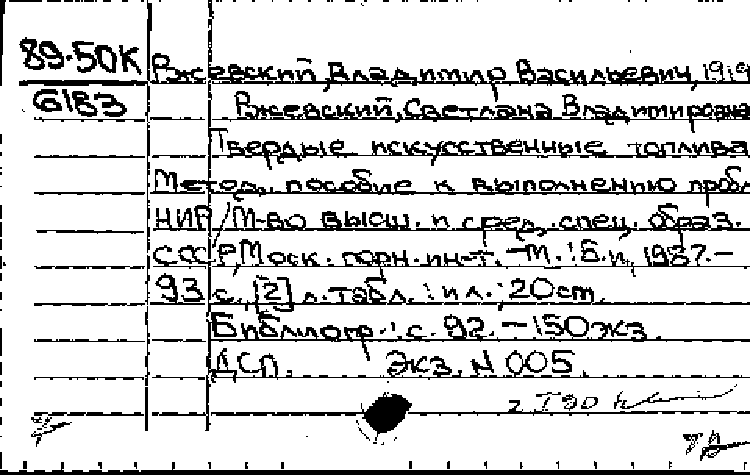 89-50К Ржевский, Владимир Васильевич, 1919
6183 Ржевский, Светлана Владимировна
Твердые искусственные топлива
Метод. пособие к выполнению пробл
НИР / М-во высш. и сред. спец. образ.
СССР, Моск. горн. ин-т. - М. : Б.и., 1987. -
93 с., [2] л. табл. : ил. ; 20 cm.
Библиогр.: с. 92. - 150 экз.
ДСП. Экз. N 005.